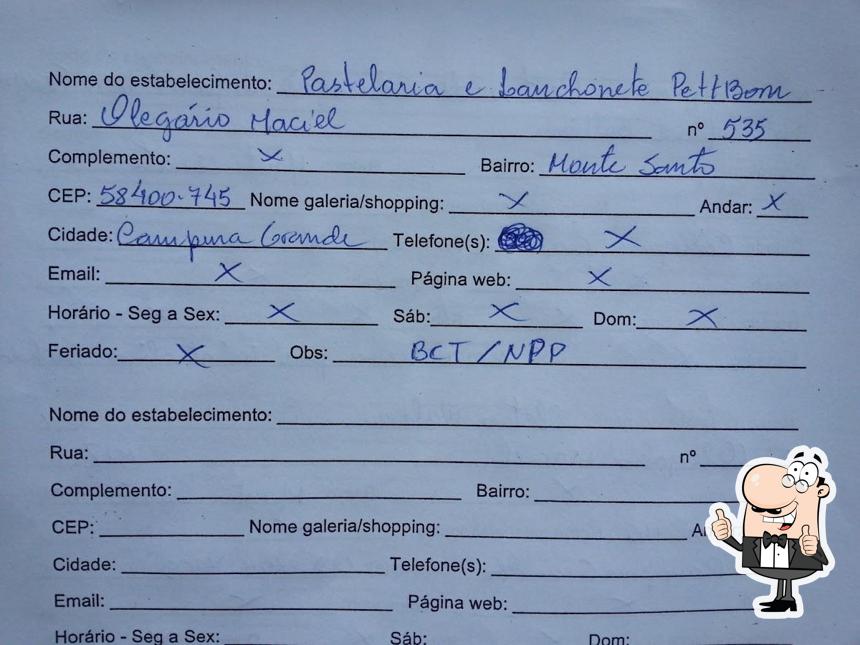 Nome do estabelecimento: Pastelaria e Lanchonete PettBom
Rua: Olegário Maciel nº 535
Complemento: X Bairro: Monte Santo
CEP: 58400-745 Nome galeria/shopping: X Andar: X
Cidade: Campina Grande Telefone(s): X
Email: X Página web: X
Horário - Seg a Sex: X Sáb: X Dom: X
Feriado: X Obs: BCT/NPP
Nome do estabelecimento:
Rua: nº
Complemento: Bairro:
CEP: Nome galeria/shopping:
Cidade: Telefone(s):
Email: Página web:
Horário - Seg a Sex: Sáb: Dom: